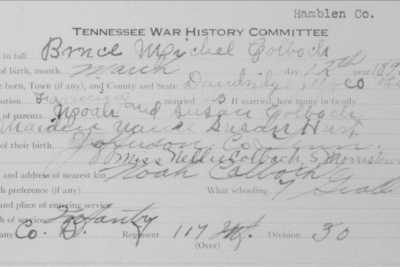 Hamblen Co.
TENNESSEE WAR HISTORY COMMITTEE
in full Bruce Michel Colboch
of birth, month March day 12th 189
e born, Town (if any), and County and State Dandridge Co
ation Farming married If married, how many in family
of parents Noah and Susan Colboch
Maiden Name Susan
of their birth Jefferson Co Tenn.
Miss Nellie Colboch, Morristown
address of nearest kin Noah Colboch
h preference (if any) What schooling 7 Grade
and place of entering service
h of service Infantry
any Co. Regiment 117 Inf. Division 30
(Over)